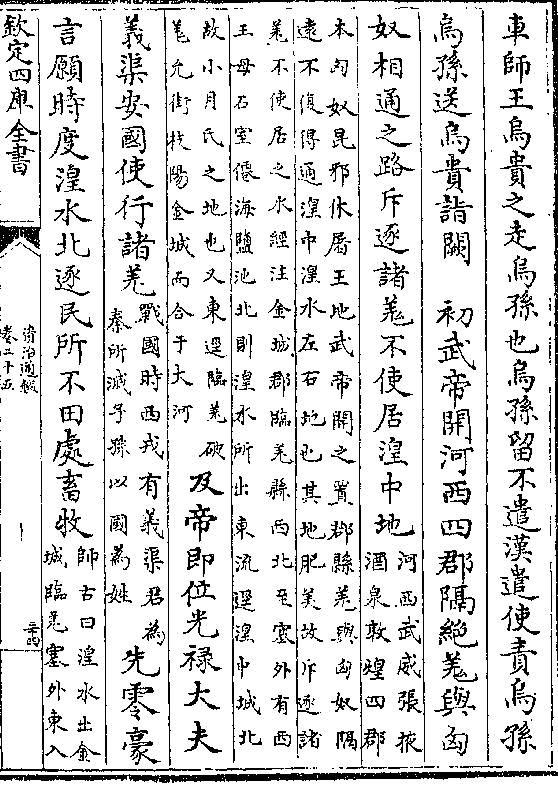 車師王烏貴之走烏孫也烏孫留不遣漢遣使責烏孫
烏孫送烏貴詣闕　初武帝開河西四郡隔絶羌與匈
奴相通之路斥逐諸羌不使居湟中地
河西武威張掖
酒泉敦煌四郡
本匈奴昆邪休屠王地武帝開之置郡縣羌與匈奴隔
遠不復得通湟中湟水左右地也其地肥美故斥逐諸
羌不使居之水經注金城郡臨羌縣西北至塞外有西
王母石室僊海鹽池北則湟水所出東流逕湟中城北
故小月氏之地也又東逕臨羌破
羌允街枝陽金城而合于大河
及帝即位光禄大夫
義渠安國使行諸羌
戰國時西戎有義渠君為
秦所滅子孫以國為姓
先零豪
言願時度湟水北逐民所不田處畜牧
師古曰湟水出金
城臨羌塞外東入
欽定四庫全書
資治通鑑
卷二十五
三十四